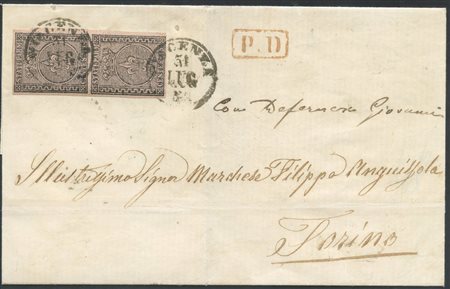 PIACENZA
31
LUG
P.D
Con Deferenza Giovanni
Illustrissimo Signor Marchese Filippo Anguissola
Torino